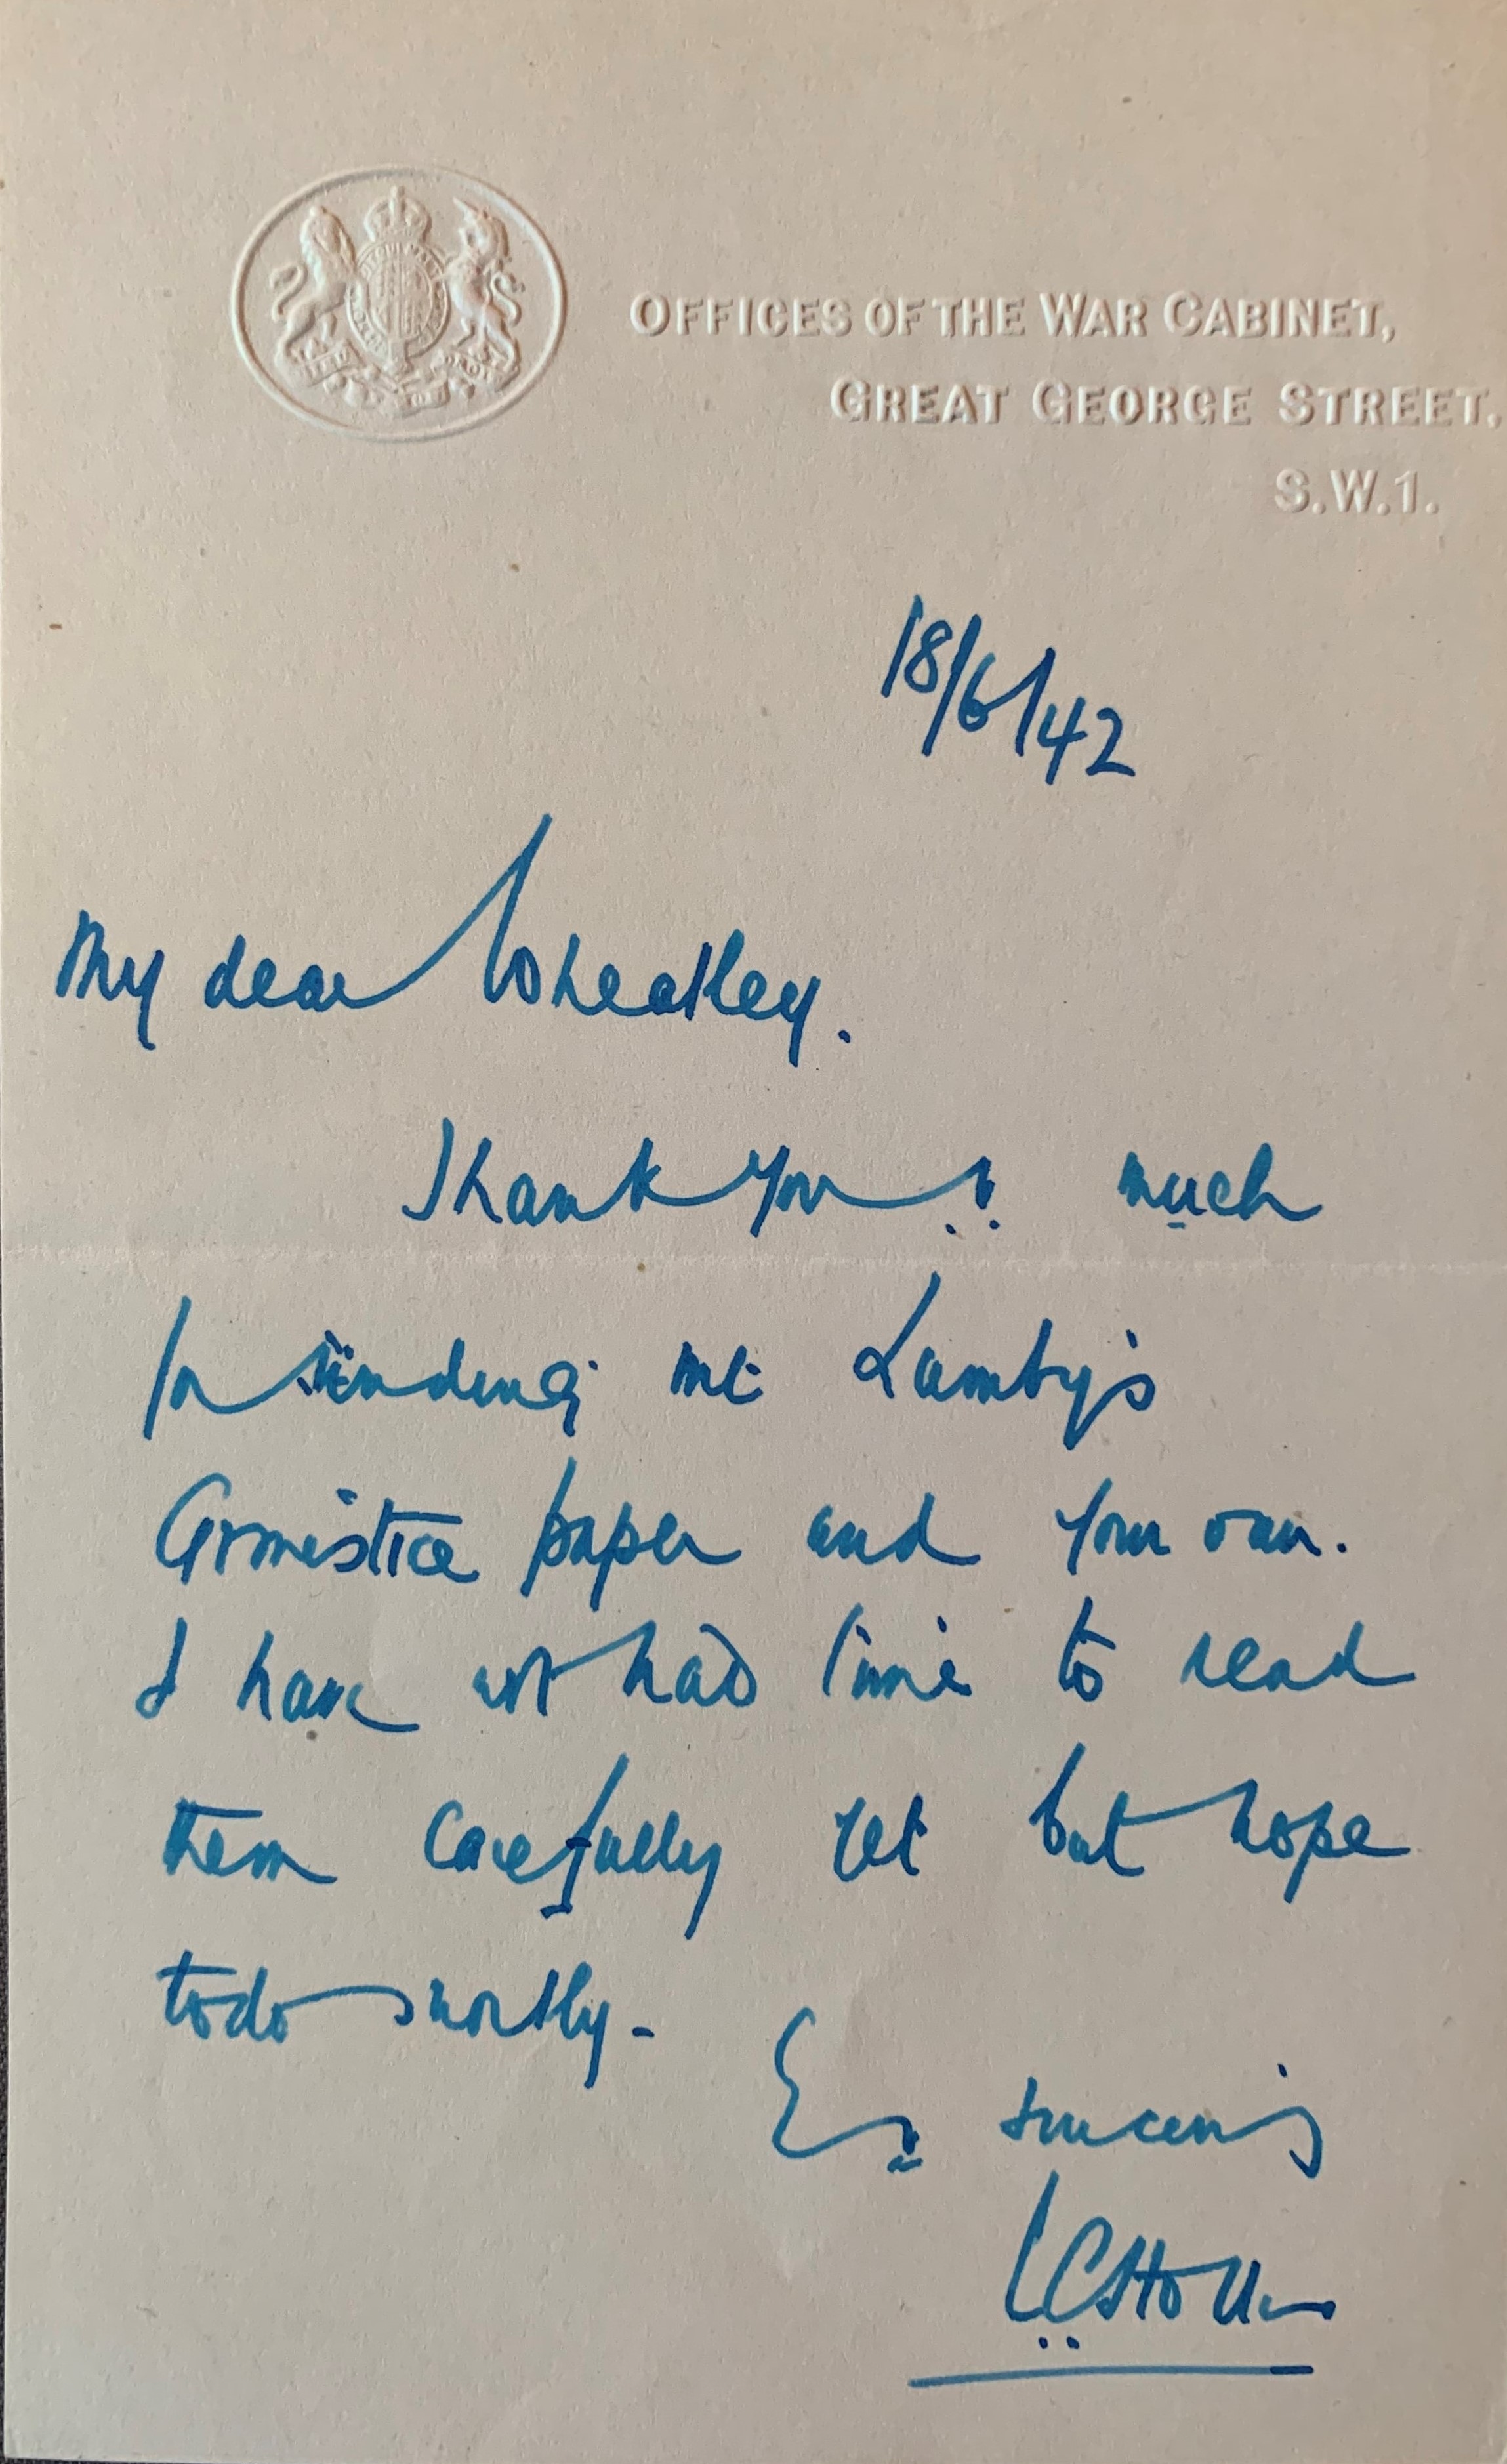 OFFICES OF THE WAR CABINET,
GREAT GEORGE STREET,
S.W.1.
18/6/42
My dear Wheatley.
Thank you v. much
for sending me Lamby's
Armistice paper and your own.
I have not had time to read
them carefully yet but hope
to do shortly -
Ev. sincerely
LC Hollis